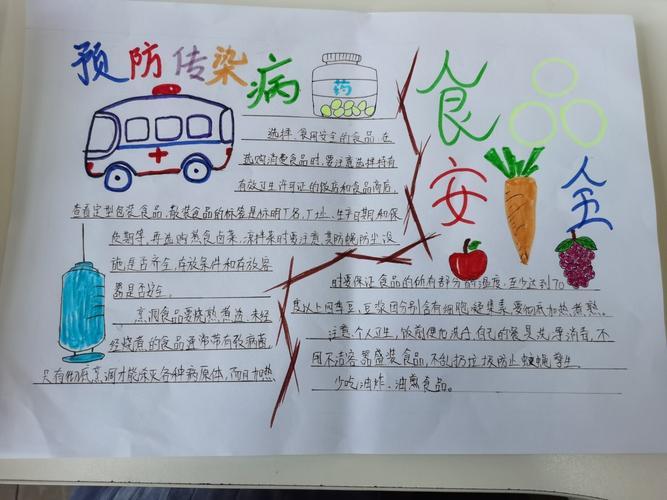 预防传染病
药
选择、食用安全的食品,在
选购消费食品时,要注意选择持有
有效卫生许可证的饭店和食品商店。
查看定型包装食品、散装食品的标签是标明厂名、厂址、生产日期和保
质期等,再选购熟食卤菜、凉拌菜时要注意其防蝇防尘设
施是否齐全,存放条件和存放容
器是否安全。
烹调食品要烧熟煮透,未经
经烧煮的食品通常带有致病菌,
只有彻底烹调才能杀灭各种病原体,而且加热
食品
安全
时要保证食品的所有部分的温度,至少达到70
度以上因青豆,豆浆因分别含有细胞凝集素,要彻底加热煮熟。
注意个人卫生,饭前便后洗手,自己的餐具洗净消毒,不
用不洁容器盛装食品,不乱扔垃圾防止蚊蝇孳生
少吃油炸、油熏食品。